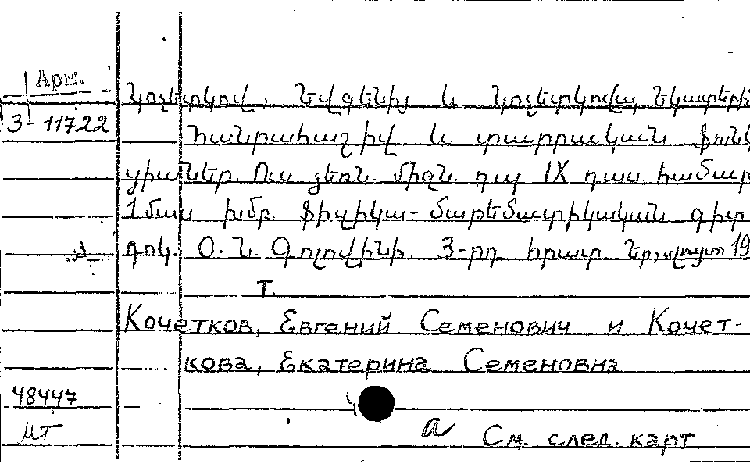 Арм.
Կոչետկով, Եվգենիյ և Կոչետկովա, Եկատերին
3-11722
Հանրահաշիվ և տարրական ֆունկ
ցիաներ Ուս ձեռն. միջն. դպ IX դաս համար
1 մաս խմբ. ֆիզիկա-մաթեմատիկական գիտ.
դոկ. Օ. Ն. Գոլովինի. 3-րդ հրատ. Եր., 19
т.
Кочетков, Евгений Семенович и Кочет-
кова, Екатерина Семеновна
48447
ШТ
а См. след. карт